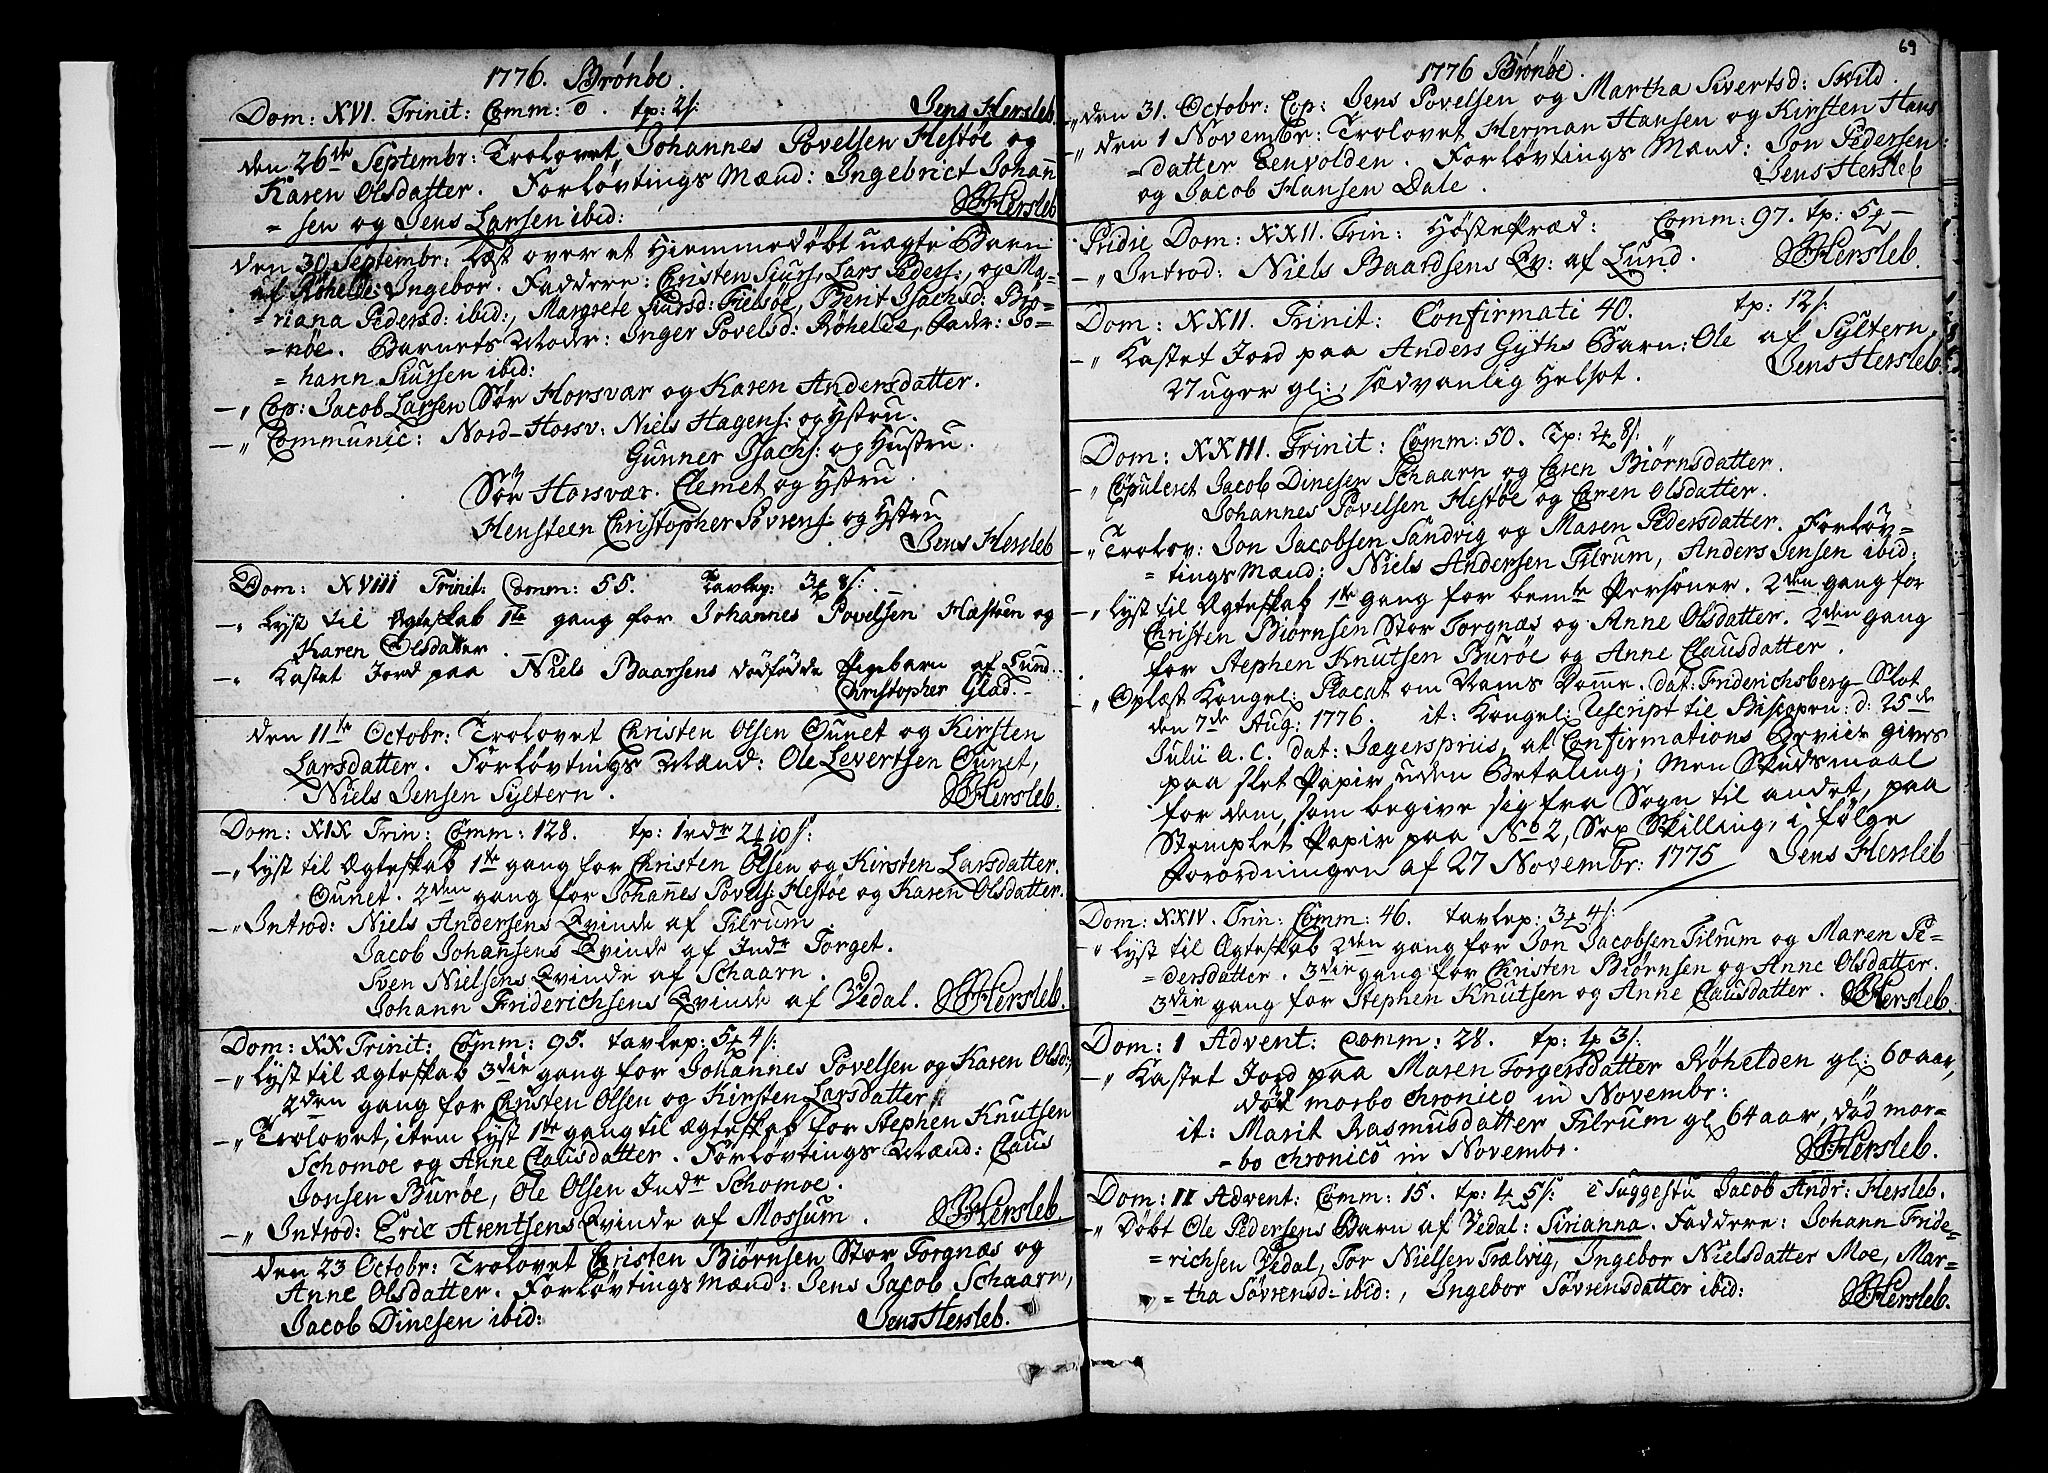 1776. Brønøe.
Dom: XVI. Trinit: Comm: 0. tp: 2 s: Jens Hersleb.
den 26de Septembr: Trolovet Johannes Povelsen Hestøe og
Karen Olsdatter. Forløvtings Mænd: Ingebrict Johann
= sen og Jens Larsen ibid: JHersleb
den 30 Septembr: Læst over et Hiemmedøbt uægte Barn
af Røhelde: Ingebor. Faddere: Christen Siurs:, Lars Peders:, og Ma=
= riana Pedersd: ibid:, Margrete Siursd: Tielsøe, Berit Isachsd: Brø=
= nøe. Barnets Moder: Inger Povelsd: Røhelde, Fader: Jo=
= hann Siursen ibid:
—„ Cop: Jacob Larsen Sør Horsvær og Karen Andersdatter.
—„ Communic: Nord-Horsv: Niels Hagens: og Hstru.
Gunner Isachs: og Hustru.
Sør Horsvær. Clemet og Hstru.
Hensteen Christopher Søvrens: og Hstru
Jens Hersleb
Dom: XVIII Trinit: Comm: 55. Tavlep: 3 8 s:
—„ Lyst til Ægteskab 1te gang for Johannes Povelsen Hæstøen og
Karen Olsdatter.
—„ Kastet Jord paa Niels Baarsens dødfødde Pigebarn af Lund.
Christopher Glad.
den 11te Octobr: Trolovet Christen Olsen Ounet og Kirsten
Larsdatter. Forløvtings Mænd: Ole Levertsen Ounet,
Niels Jensen Syltern. JHersleb.
Dom: XIX Trin: Comm: 128. tp: 1 rdr 2 10 s:
—„ Lyst til Ægteskab 1te gang for Christen Olsen og Kirsten Larsdatter.
Ounet. 2den gang for Johannes Povels: Hestøe og Karen Olsdatter.
—„ Introd: Niels Andersens Qvinde af Tilrum
Jacob Johansens Qvinde af Indr Torget.
Sven Nielsens Qvinde af Schaarn.
Johann Friderichsens Qvinde af Vedal. JHersleb.
Dom: XX Trinit: Comm: 95. tavlep: 5 4 s:
—„ Lyst til Ægteskab 3die gang for Johannes Povelsen og Karen Olsd:,
2den gang for Christen Olsen og Kirsten Larsdatter,
—„ Trolovet, item Lyst 1te gang til Ægteskab for Stephen Knutsen
Schomoe og Anne Clausdatter. Forløvtings Mænd: Claus
Jonsen Burøe, Ole Olsen Indr Schomoe.
—„ Introd: Eric Arentsens Qvinde af Mossum. JHersleb.
den 23 Octobr: Trolovet Christen Biørnsen Stor Torgnæs og
Anne Olsdatter. Forløvtings Mænd: Jens Jacob Schaarn,
Jacob Dinesen ibid: Jens Hersleb.
69
1776 Brønøe.
„ den 31. Octobr: Cop: Jens Povelsen og Martha Sivertsd: Skild.
—„ den 1 Novembr: Trolovet Herman Hansen og Kirsten Hans
= datter Eenvolden. Forløvtings Mænd: Jon Pedersen
og Jacob Hansen Dale. Jens Hersleb
Pridie Dom: XXII. Trin: Høstefræd: Comm: 97. tp: 5 —
—„ Introd: Niels Baardsens Qv: af Lund. JHersleb.
Dom: XXII. Trinit: Confirmati 40. tp: 12 s:
—„ Kastet Jord paa Anders Gyths Barn: Ole af Syltern,
27 uger gl:, sædvanlig Helsot. Jens Hersleb.
Dom: XXIII. Trinit: Comm: 50. Tp: 2 8 s:
—„ Copuleret Jacob Dinesen Schaarn og Caren Biørnsdatter.
Johannes Povelsen Hestøe og Caren Olsdatter.
—„ Trolov: Jon Jacobsen Sandvig og Maren Pedersdatter. Forløv=
= tings Mænd: Niels Andersen Tilrum, Anders Jensen ibid:
—„ Lyst til Ægteskab 1te gang for bemte Personer. 2den gang for
Christen Biørnsen Stor Torgnæs og Anne Olsdatter. 2den gang
for Stephen Knutsen Burøe og Anne Clausdatter.
„ Oplæst Kongel: Placat om Dams Domme. dat: Friderichsberg Slot
den 7de Aug: 1776. it: Kongel: Rescript til Biscopen: d: 25de
Julii A. C. dat: Jægerspriis, at Confirmations Beviis gives
paa slet Papir uden Betaling; men Skudsmaal
for dem, som begive sig fra Sogn til andet, paa
Stemplet Papir paa No 2, Sex Skilling, i følge
Forordningen af 27 Novembr: 1775 Jens Hersleb
Dom: XXIV. Trin: Comm: 46. tavlep: 3 4 s:
„ Lyst til Ægteskab 2den gang for Jon Jacobsen Tilrum og Maren Pe=
= dersdatter. 3die gang for Christen Biørnsen og Anne Olsdatter.
3die gang for Stephen Knutsen og Anne Clausdatter. JHersleb.
Dom: 1 Advent: Comm: 28. tp: 1 3 s:
—„ Kastet Jord paa Maren Torgersdatter Røhelden gl: 60 aar,
død morbo chronico in Novembr:
it: Marit Rasmusdatter Tilrum gl: 64 aar, død mor=
= bo chronico in Novembr. JHersleb.
Dom: II Advent: Comm: 15. tp: 4 5 s: è Suggestu Jacob Andr: Hersleb.
—„ Døbt Ole Pedersens Barn af Vedal: Sirianna. Faddere: Johann Fride=
= richsen Vedal, Tor Nielsen Trælvig, Ingebor Nielsdatter Moe, Mar=
= tha Søvrensd: ibid:, Ingebor Søvrensdatter ibid: JHersleb.